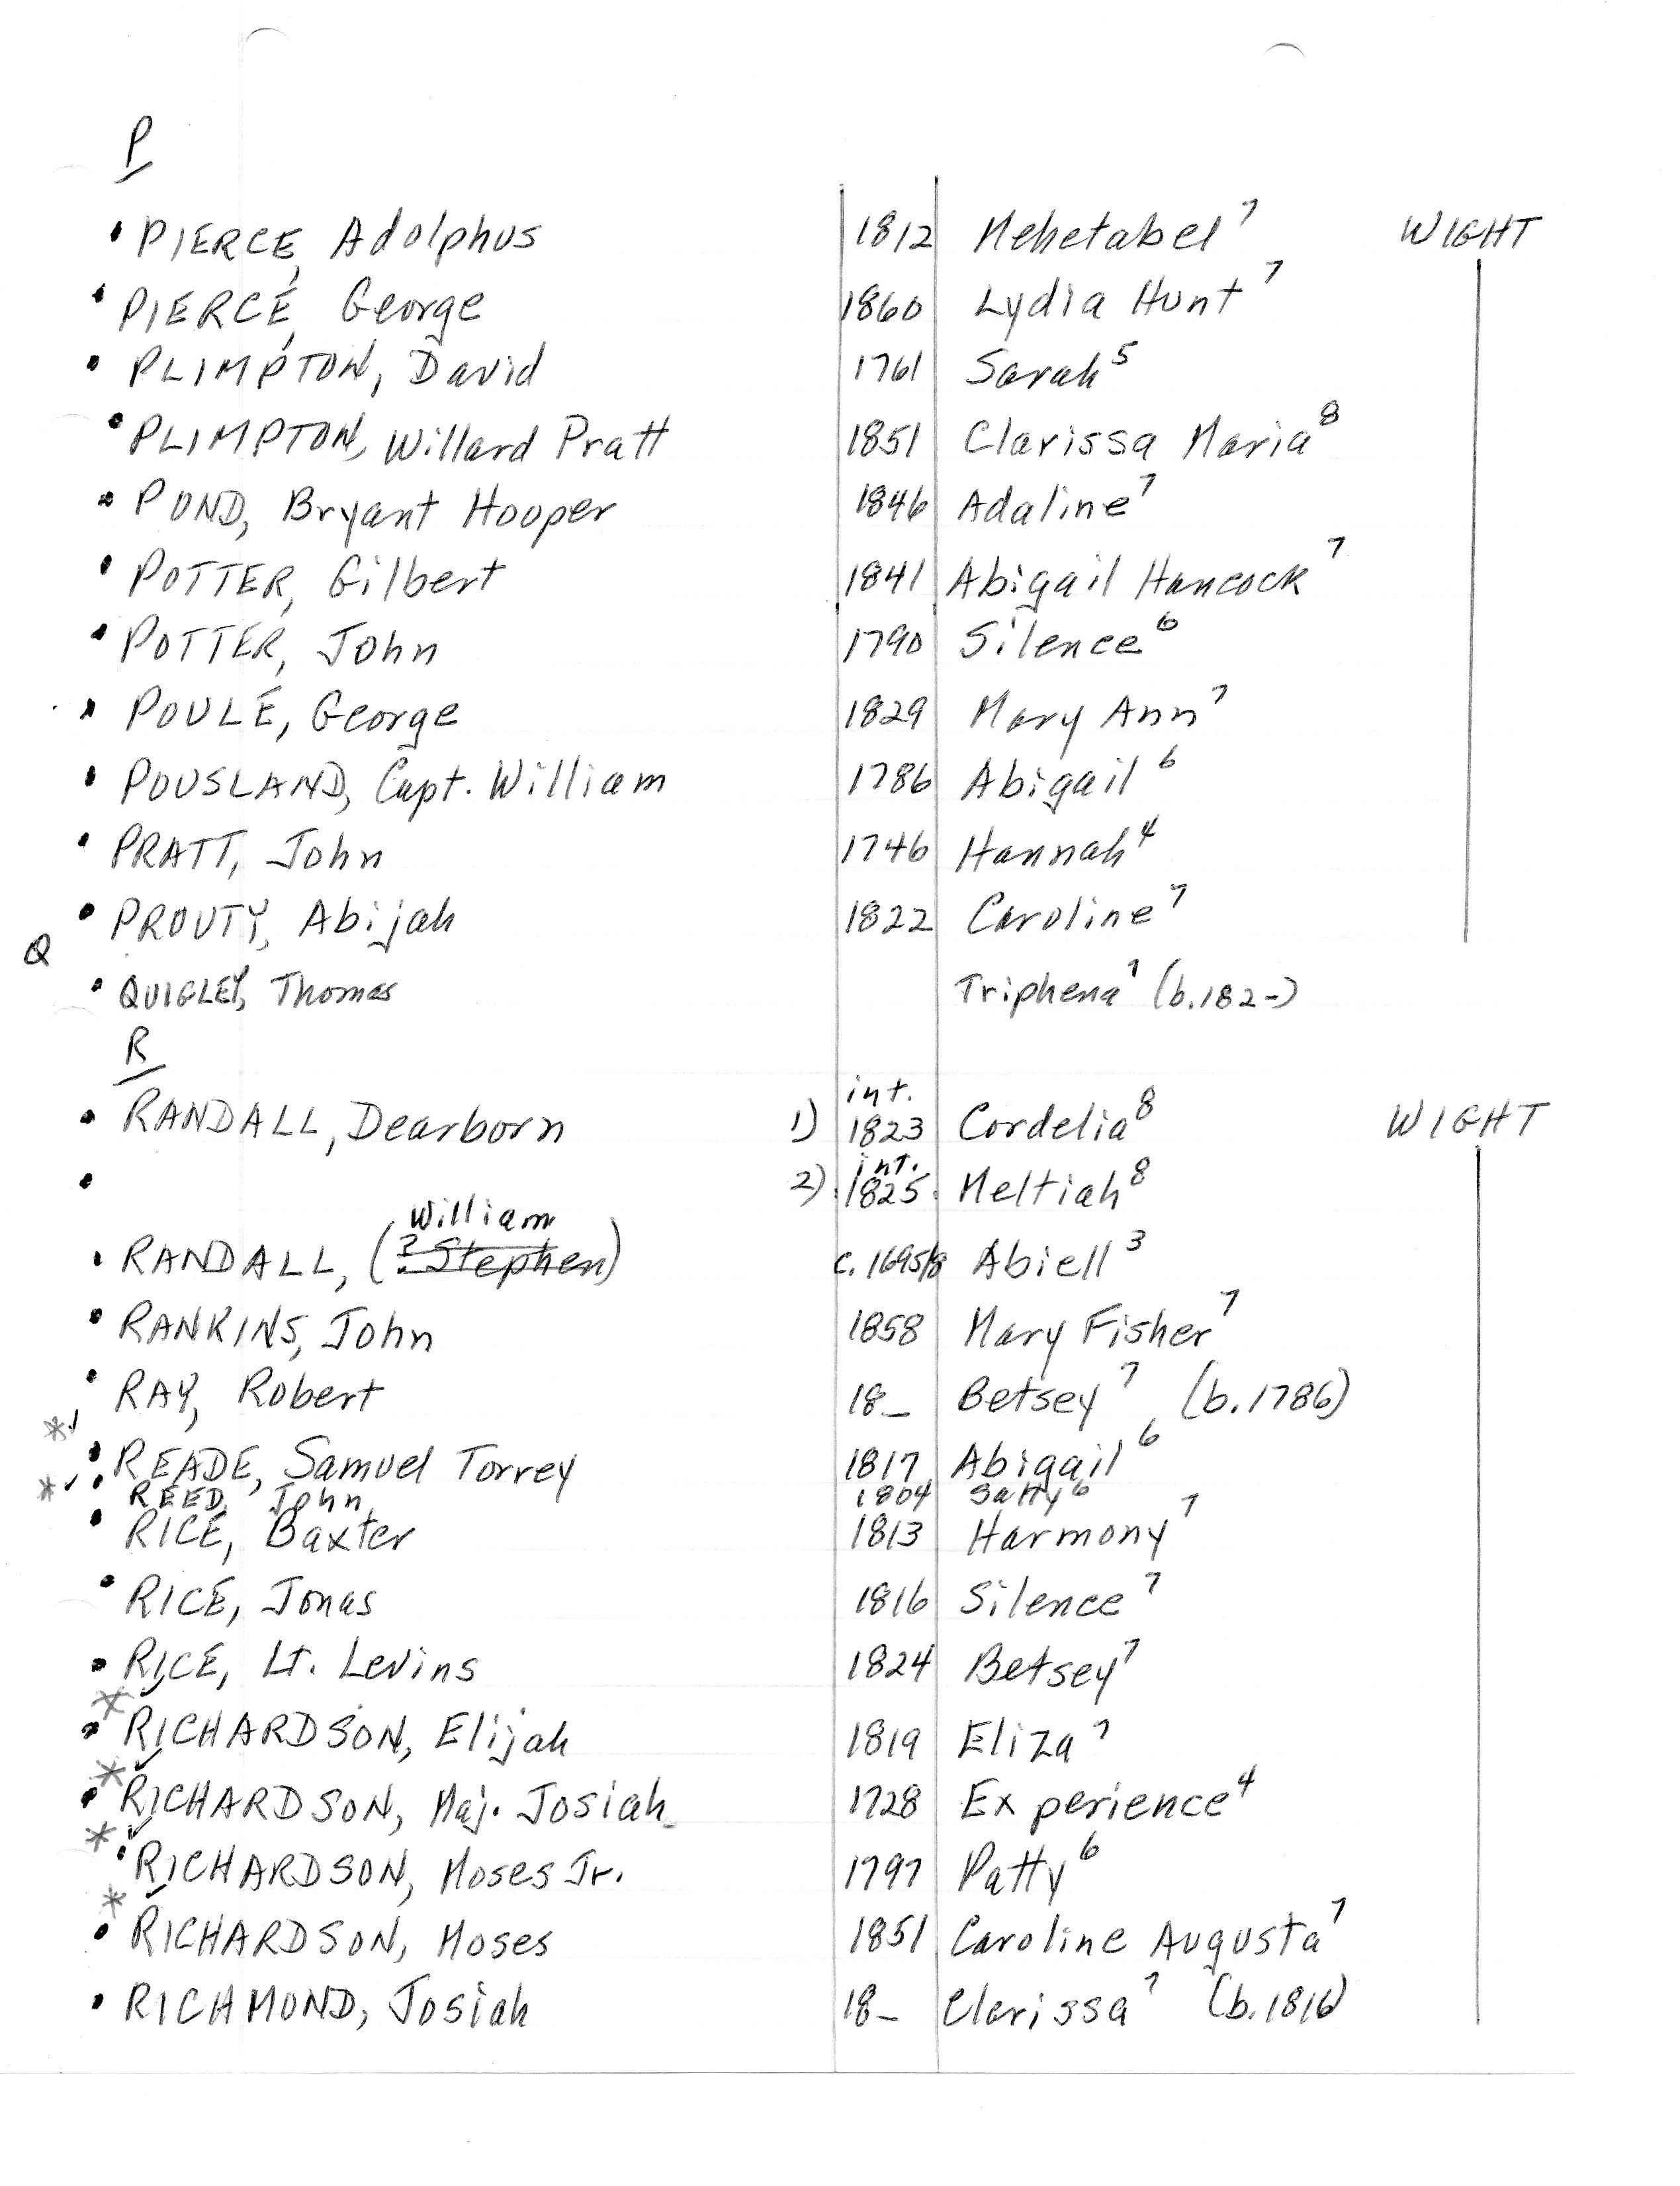 P
• PIERCE, Adolphus 1812 Mehetabel⁷ WIGHT
• PIERCE, George 1860 Lydia Hunt⁷
• PLIMPTON, David 1761 Sarah⁵
• PLIMPTON, Willard Pratt 1851 Clarissa Maria⁸
• POND, Bryant Hooper 1846 Adaline⁷
• POTTER, Gilbert 1841 Abigail Hancock⁷
• POTTER, John 1790 Silence⁶
• POULE, George 1829 Mary Ann⁷
• POUSLAND, Capt. William 1786 Abigail⁶
• PRATT, John 1746 Hannah⁴
• PROUTY, Abijah 1822 Caroline⁷
Q
• QUIGLEY, Thomas Triphena⁷ (b.182-)
R
int.
• RANDALL, Dearborn 1) 1823 Cordelia⁸ WIGHT
int.
• 2) 1825 Meltiah⁸
William
• RANDALL, (? Stephen) c. 1695/8 Abiell³
• RANKINS, John 1858 Mary Fisher⁷
• RAY, Robert 18_ Betsey⁷ (b.1786)
*✓ • READE, Samuel Torrey 1817 Abigail⁶
*✓ • REED, John 1804 Sally⁶
• RICE, Baxter 1813 Harmony⁷
• RICE, Jonas 1816 Silence⁷
• RICE, Lt. Levins 1824 Betsey⁷
*✓ • RICHARDSON, Elijah 1819 Eliza⁷
*✓ • RICHARDSON, Maj. Josiah 1728 Experience⁴
*✓ • RICHARDSON, Moses Jr. 1797 Patty⁶
*✓ • RICHARDSON, Moses 1851 Caroline Augusta⁷
• RICHMOND, Josiah 18_ Clarissa⁷ (b.1816)